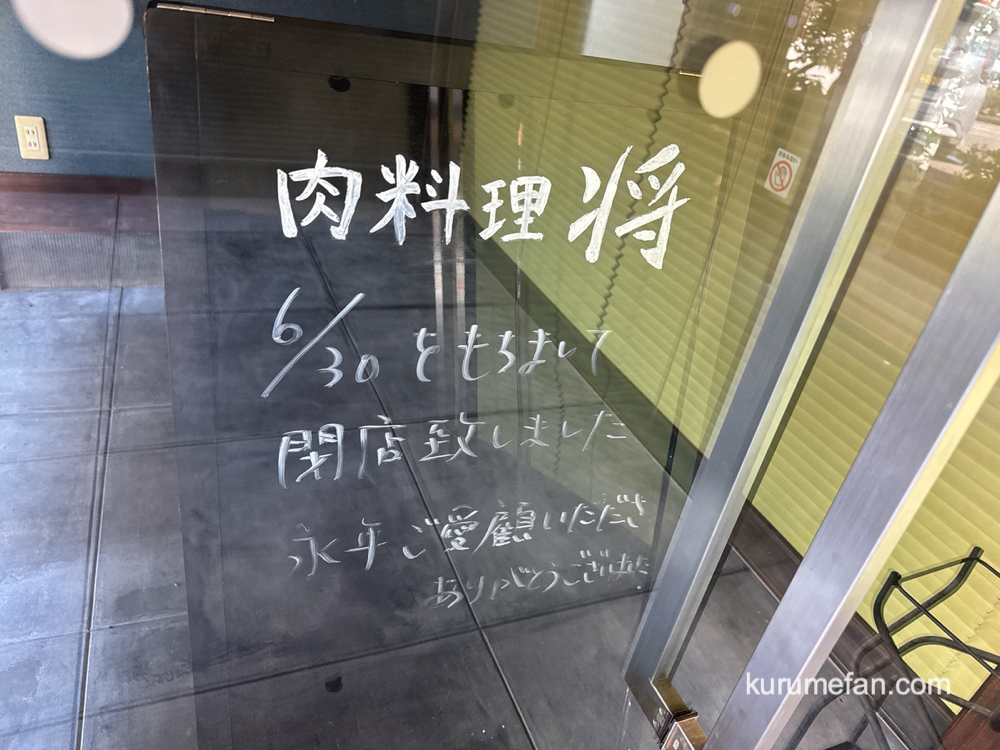 肉料理 将
6/30 をもちまして
閉店致しました
永年ご愛顧いただき
ありがとうございました
kurumefan.com